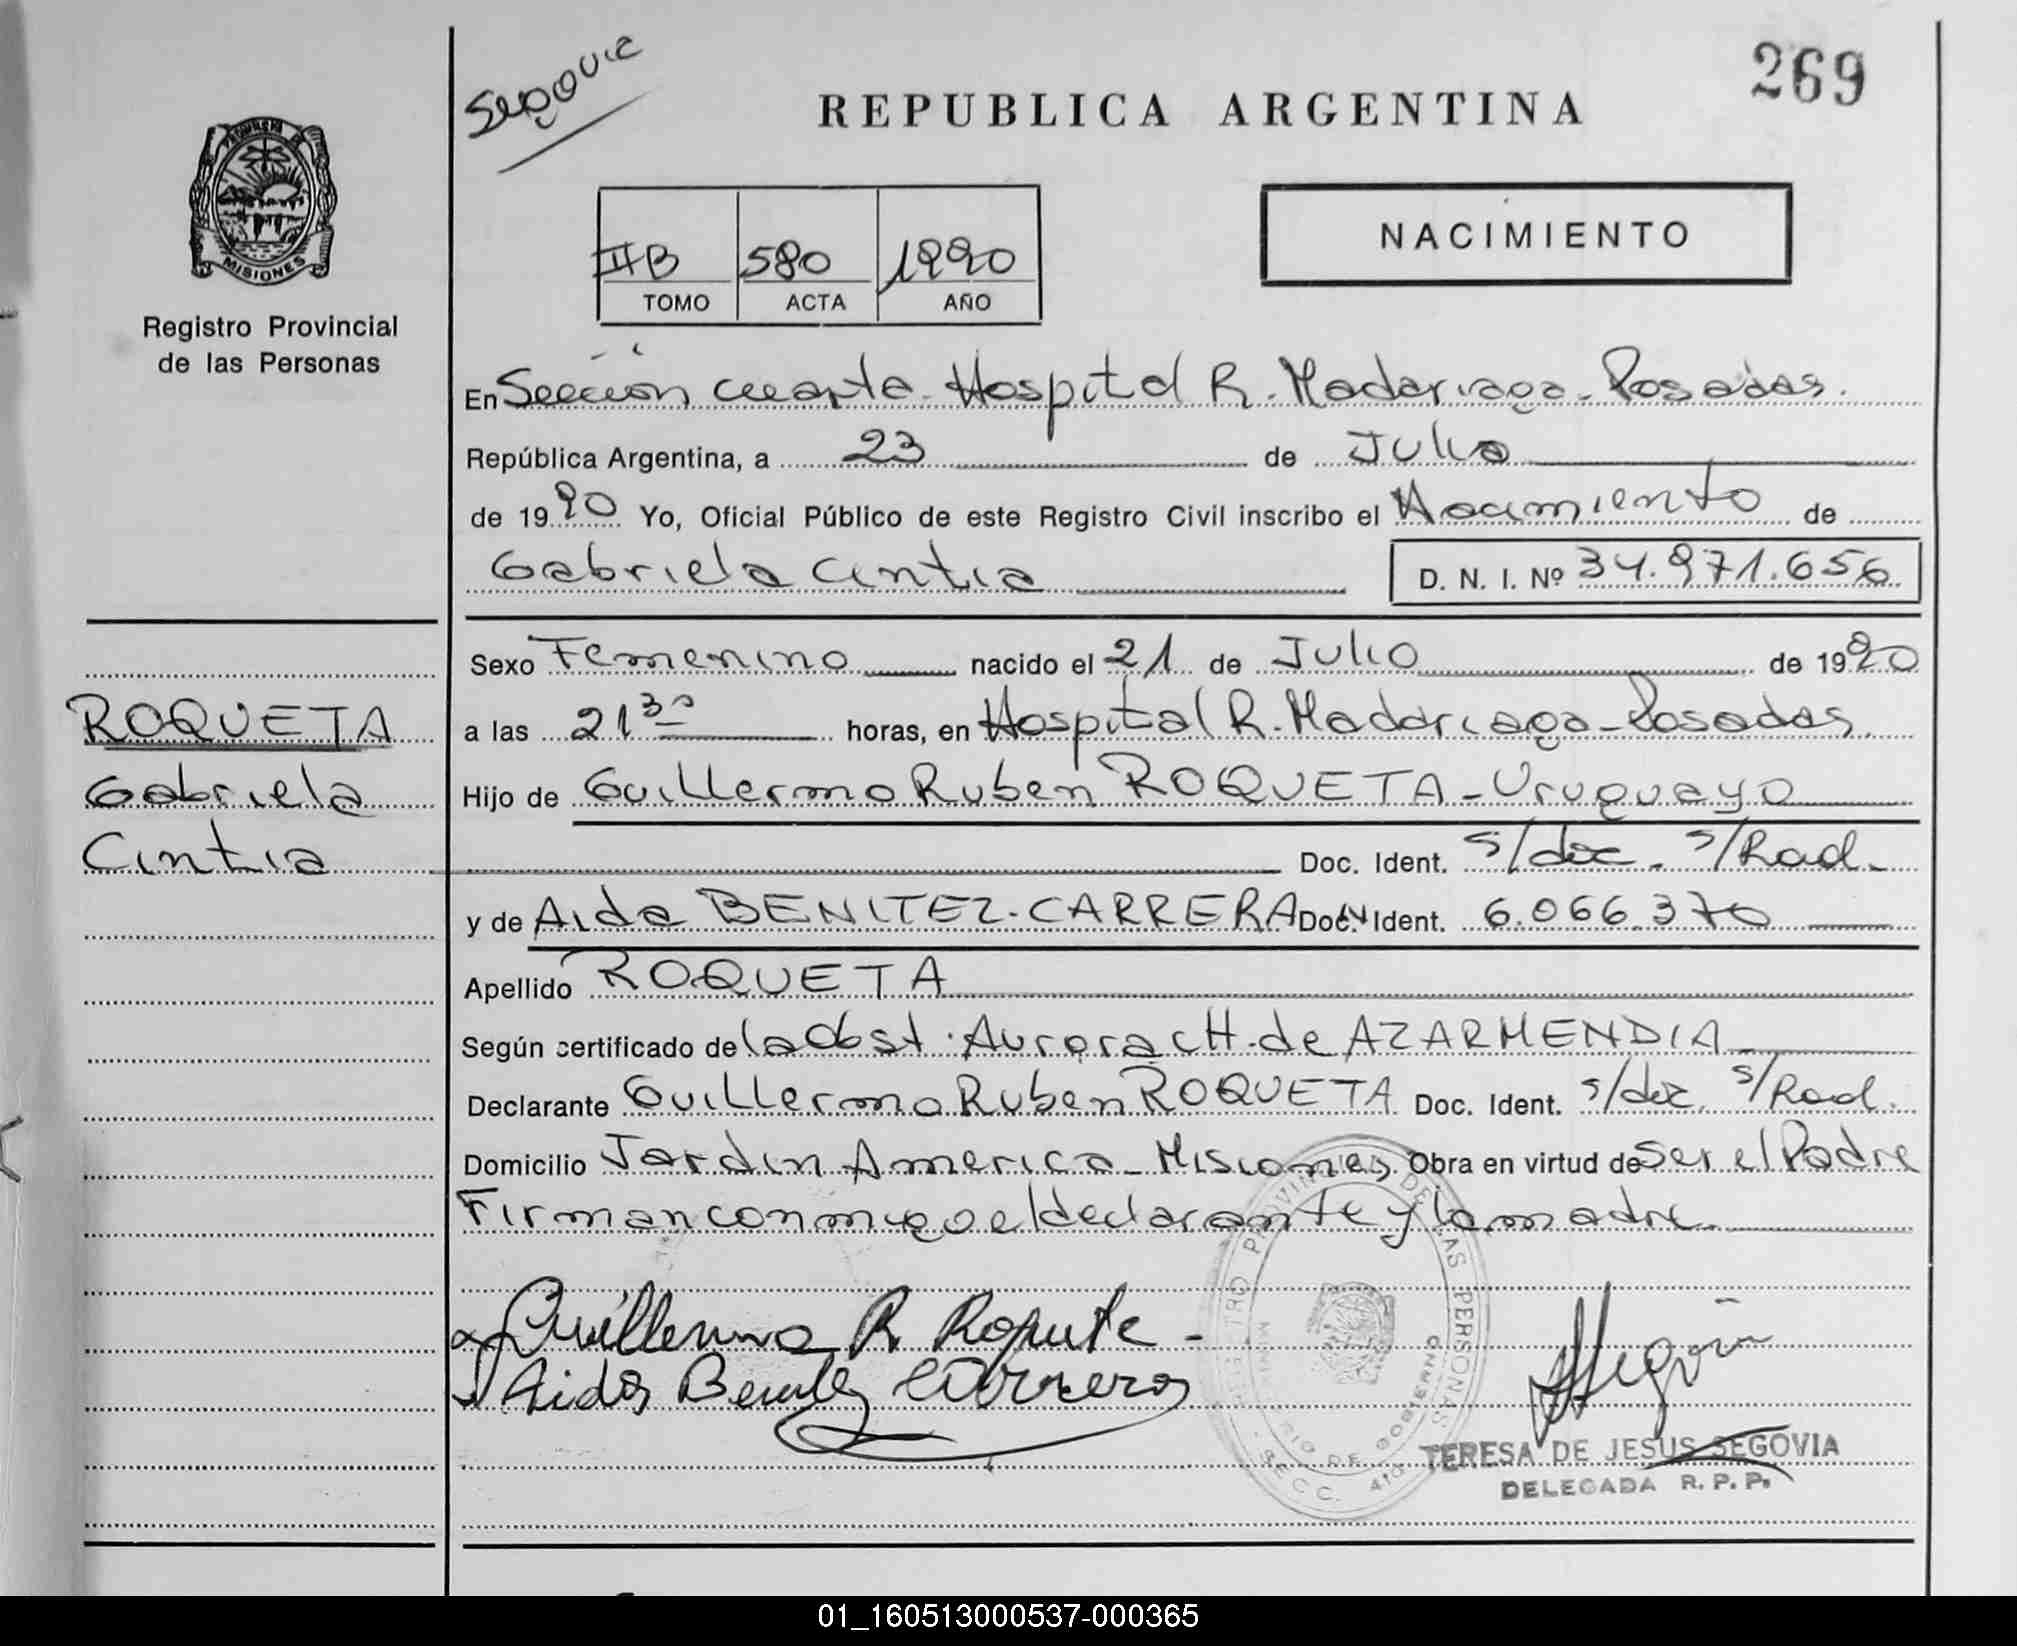 Segovia
269
REPUBLICA ARGENTINA
NACIMIENTO
IIB 580 1990
TOMO ACTA AÑO
MISIONES
Registro Provincial
de las Personas
En Sección cuarta - Hospital R. Madariaga - Posadas.
República Argentina, a 23 de Julio
de 1990 Yo, Oficial Público de este Registro Civil inscribo el Nacimiento de
Gabriela Cintia D. N. I. Nº 34.971.656
Sexo Femenino nacido el 21 de Julio de 1990
a las 21 30 horas, en Hospital R. Madariaga - Posadas.
Hijo de Guillermo Ruben ROQUETA - Uruguayo
Doc. Ident. s/doc. s/Rad.
y de Aida BENITEZ - CARRERA Doc. Ident. 6.066.370
Apellido ROQUETA
Según certificado de la Obst. Aurora CH. de AZARMENDIA
Declarante Guillermo Ruben ROQUETA Doc. Ident. s/doc. s/Rad.
Domicilio Jardin America - Misiones, Obra en virtud de ser el Padre
Firman conmigo el declarante y la madre.
ROQUETA
Gabriela
Cintia
Guillermo R Roqueta -
Aida Benitez Carrera
REGISTRO PROVINCIAL DE LAS PERSONAS
MINISTERIO DE GOBIERNO
SECC. 4ta
Segovia
TERESA DE JESUS SEGOVIA
DELEGADA R. P. P.
01_160513000537-000365